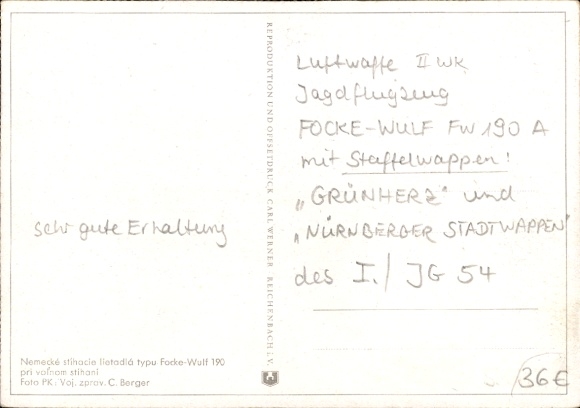 Luftwaffe II WK
Jagdflugzeug
FOCKE-WULF FW 190 A
mit Staffelwappen!
"GRÜNHERZ" und
"NÜRNBERGER STADTWAPPEN"
des I./ JG 54
sehr gute Erhaltung
REPRODUKTION UND OFFSETDRUCK CARL WERNER REICHENBACH i.V.
Nemecké stíhacie lietadlá typu Focke-Wulf 190
pri voľnom stíhaní
Foto PK: Voj. zprav. C. Berger
36€